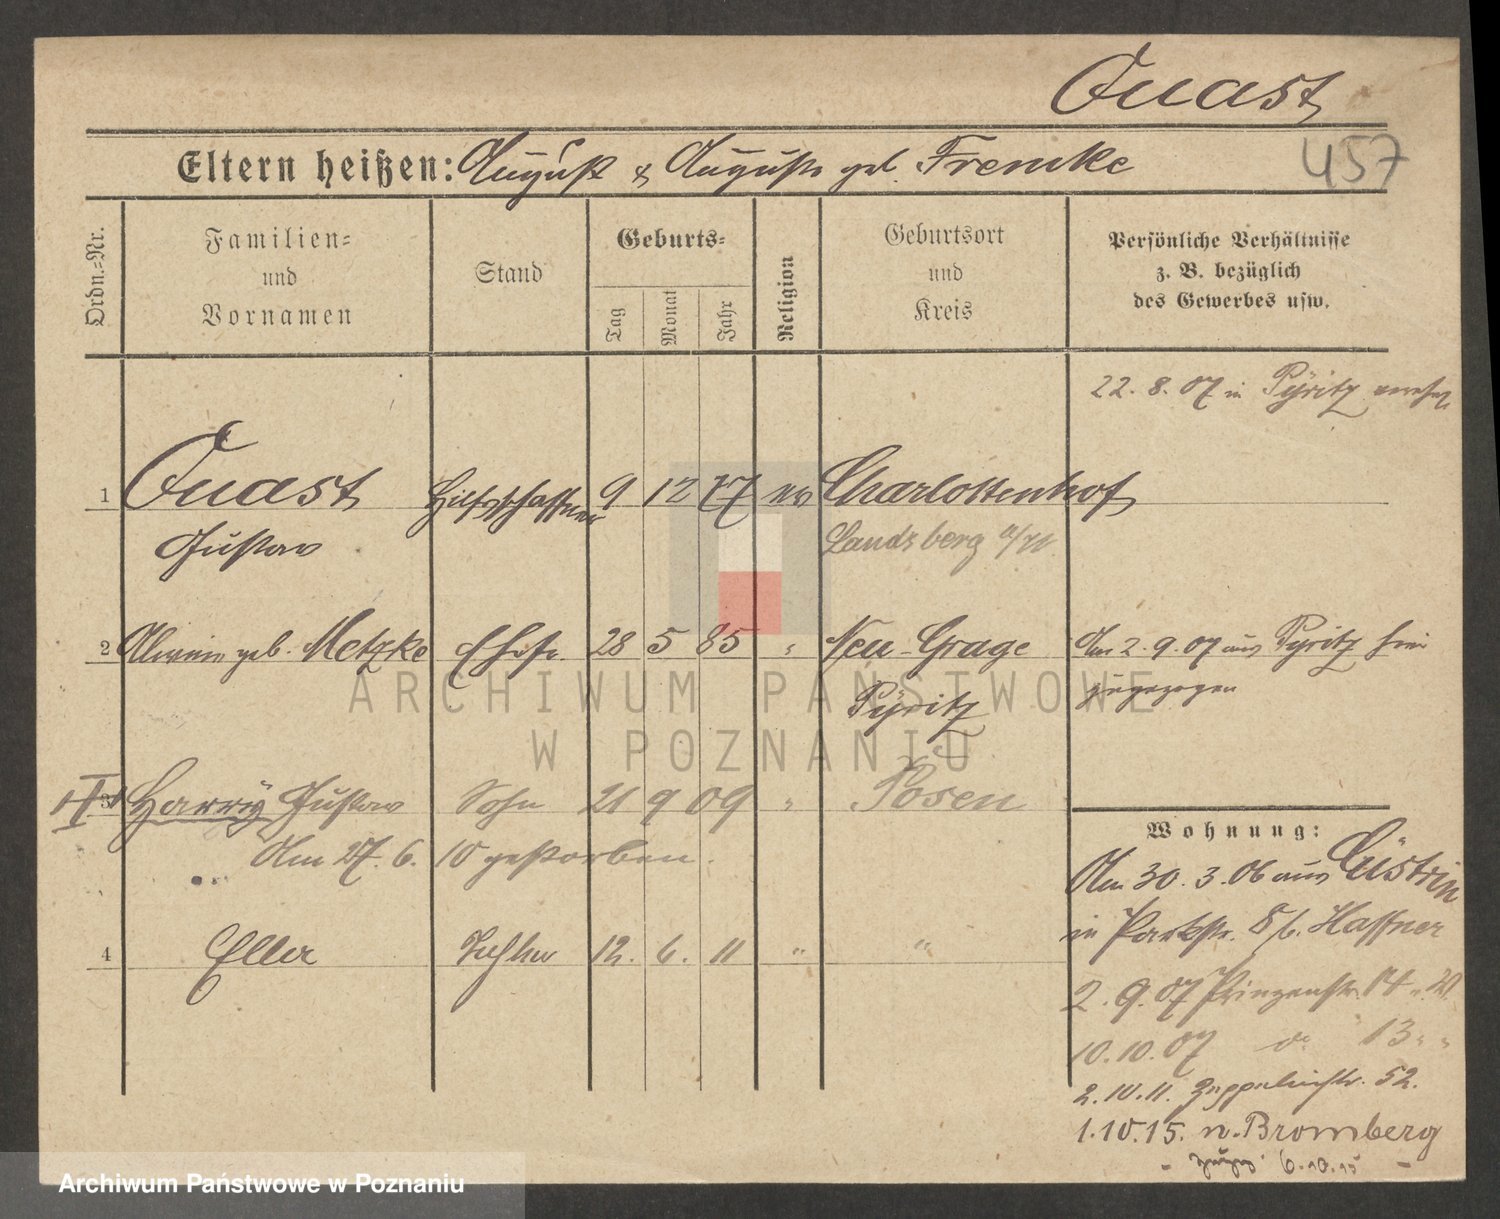 Quast
Eltern heißen: August & Auguste geb. Fremke
457
Ordn.=Nr.
Familien=
und
Vornamen
Stand
Geburts=
Tag
Monat
Jahr
Religion
Geburtsort
und
Kreis
Persönliche Verhältnisse
z. B. bezüglich
des Gewerbes usw.
22. 8. 07 in Pyritz
1 Quast Hilfsschaffner 9 12 77 ev Charlottenhof
Gustav Landsberg a/W
2 geb. Metzke Ehefr. 28 5 85 " Neu-Grage Am 2. 9. 07 aus Pyritz hier
Pyritz zugezogen
3 Harry Gustav Sohn 21 9 09 " Posen
Am 27. 6. 10 gestorben.
4 Ella Tochter 12. 6. 11 " "
Wohnung:
Am 30. 3. 06 aus Cüstrin
in Parkstr. 8 b. Haffner
2. 9. 07 Prinzenstr. 14 W
10. 10. 07 do 13 " "
2. 10. 11. Zeppelinstr. 52.
1. 10. 15. n. Bromberg
6.10.15
ARCHIWUM PAŃSTWOWE
W POZNANIU
Archiwum Państwowe w Poznaniu